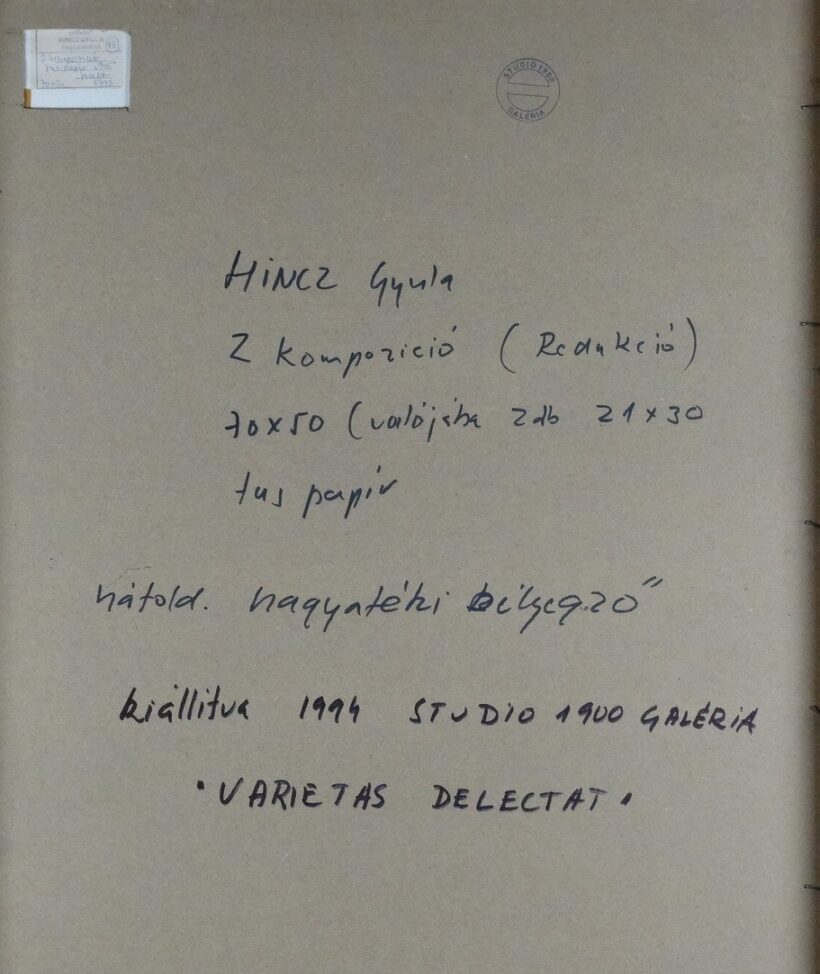 HINCZ GYULA
75
STUDIO 1900
GALÉRIA
HiNCZ Gyula
2 kompozició (Redukció)
70x50 (valójába 2db 21x30
tus papír
hátold. hagyatéki bélyegző"
kiállítva 1994 STUDIO 1900 GALÉRiA
"VARIETAS DELECTAT"